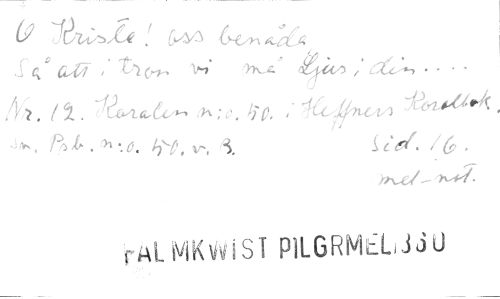 O Kriste! oss benåda
Så att i tron vi må Ljus i din....
Nr. 12. Koralen n:o. 50. i Hæffners Koralbok.
Sv. Psb. n:o. 50. v. 3. Sid. 16.
mel-not.
PALMKWIST PILGRMEL.1860